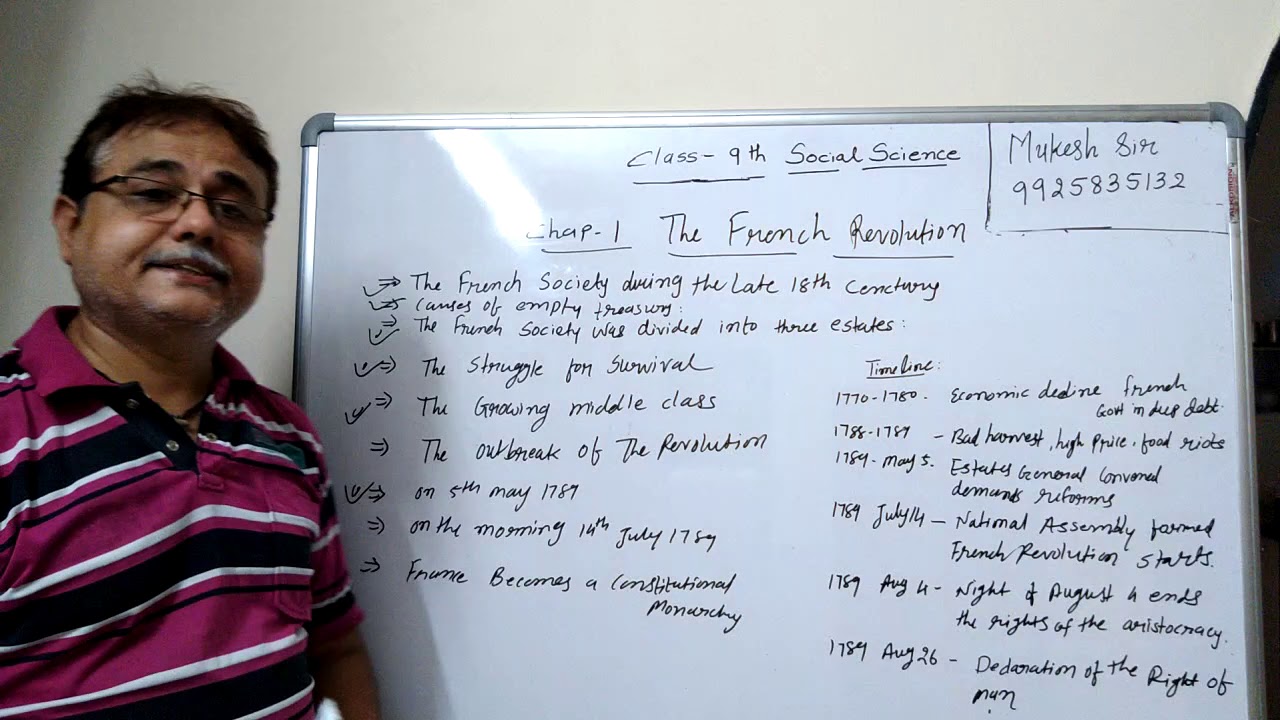 Class - 9th Social Science
Mukesh Sir
9925835132
Chap-1 The French Revolution
⇒ The French Society during the Late 18th Cenctury
⇒ Causes of empty treasury:
⇒ The French Society was divided into three estates:
⇒ The Struggle for Survival
⇒ The Growing middle class
⇒ The outbreak of The Revolution
⇒ on 5th may 1789
⇒ on the morning 14th July 1789
⇒ France Becomes a Constitutional
Monarchy
Timeline:
1770-1780. Economic decline french
Govt in deep debt.
1788-1789 - Bad harvest, high price, food riots
1789 - May 5. Estates General Convened
demands reforms
1789 July 14 - National Assembly formed
French Revolution starts.
1789 Aug 4 - Night of August 4 ends
the rights of the aristocracy.
1789 Aug 26 - Declaration of the Right of
man